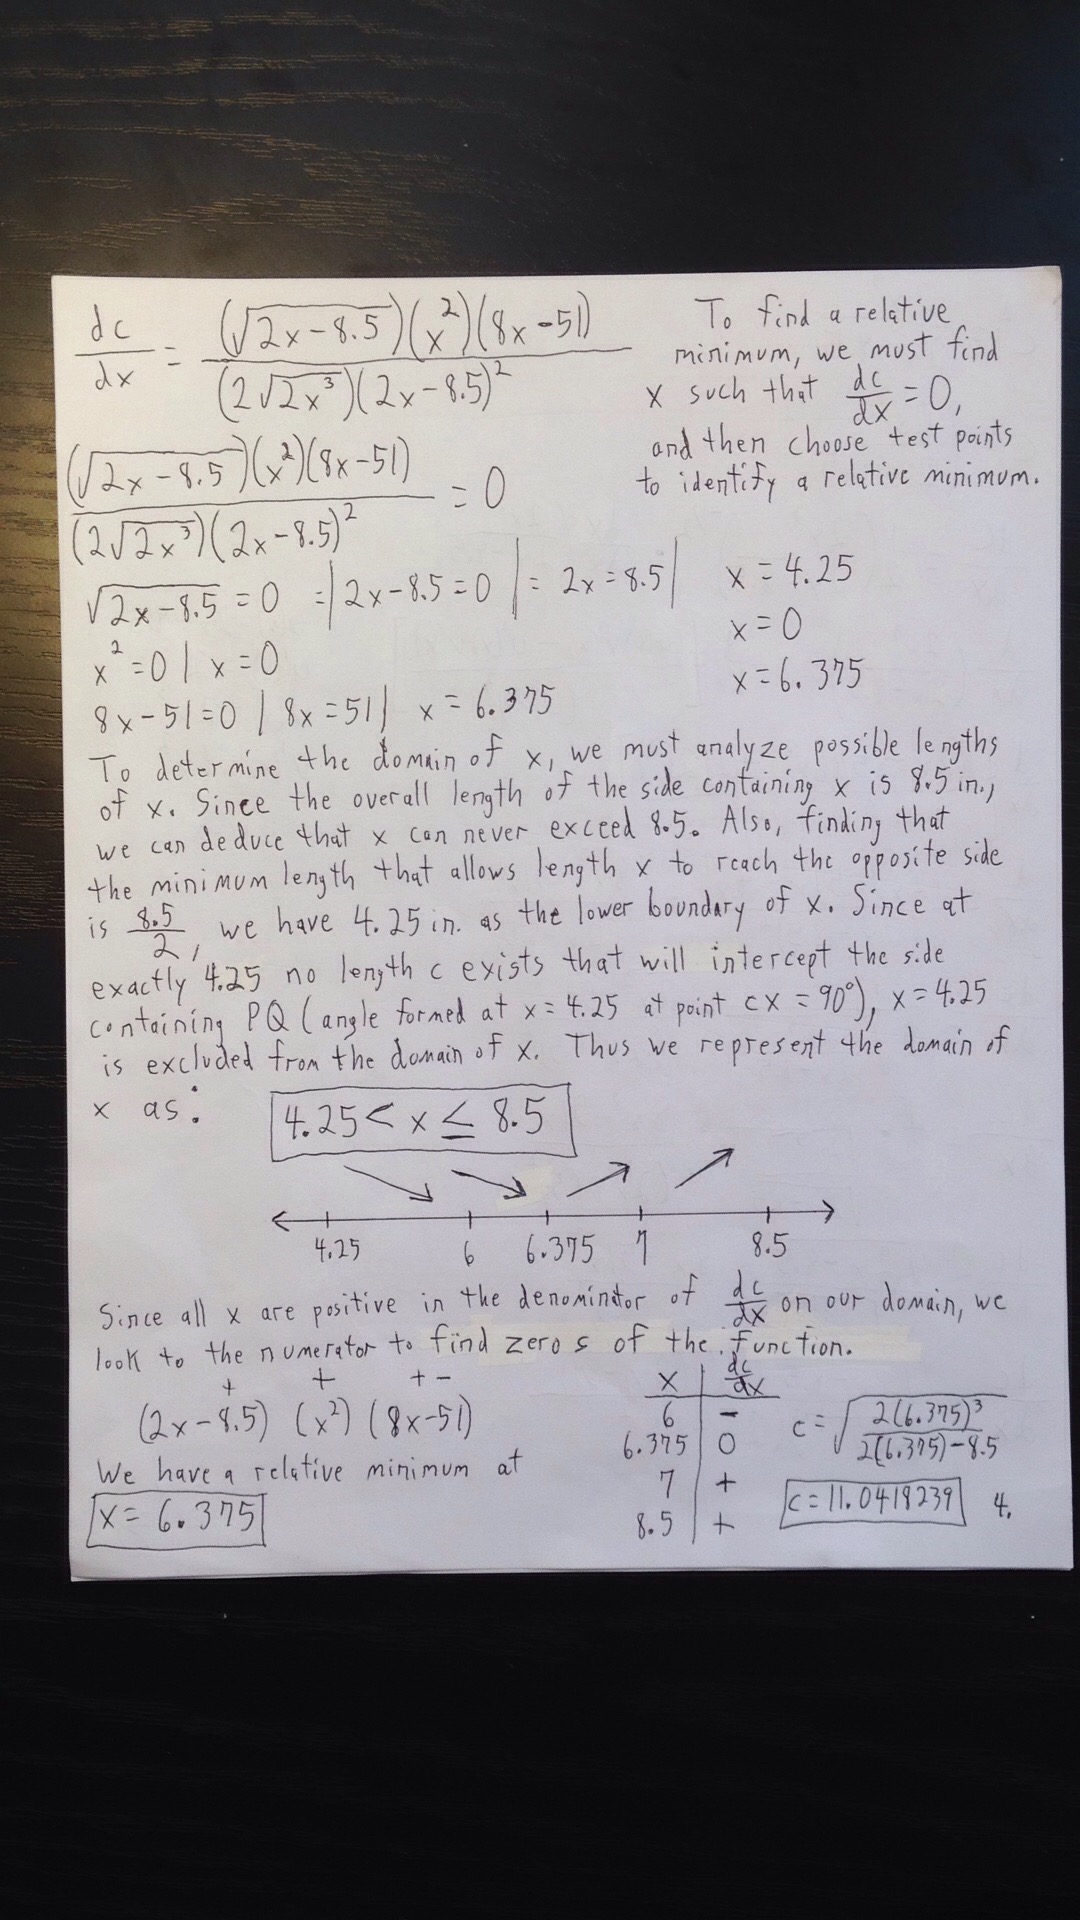 dc/dx = (√(2x-8.5))(x²)(8x-51) / (2√(2x³))(2x-8.5)²
To find a relative
minimum, we must find
x such that dc/dx = 0,
and then choose test points
to identify a relative minimum.
(√(2x-8.5))(x²)(8x-51) / (2√(2x³))(2x-8.5)² = 0
√(2x-8.5) = 0 = | 2x-8.5=0 | = 2x=8.5 | x = 4.25
x² = 0 | x = 0 x = 0
8x-51=0 | 8x=51 | x = 6.375 x = 6.375
To determine the domain of x, we must analyze possible lengths
of x. Since the overall length of the side containing x is 8.5 in.,
we can deduce that x can never exceed 8.5. Also, finding that
the minimum length that allows length x to reach the opposite side
is 8.5/2, we have 4.25 in. as the lower boundary of x. Since at
exactly 4.25 no length c exists that will intercept the side
containing PQ (angle formed at x = 4.25 at point cx = 90°), x = 4.25
is excluded from the domain of x. Thus we represent the domain of
x as: 4.25 < x ≤ 8.5
4.25 6 6.375 7 8.5
Since all x are positive in the denominator of dc/dx on our domain, we
look to the numerator to find zeros of the function.
+ + + -
(2x-8.5) (x²) (8x-51)
We have a relative minimum at
x = 6.375
x | dc/dx
6 | -
6.375 | 0
7 | +
8.5 | +
c = √(2(6.375)³ / 2(6.375)-8.5)
c = 11.0418239
4.